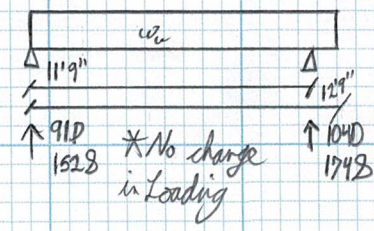 wu
11'9"
12'9"
91D
152S
*No change
in Loading
104D
174S